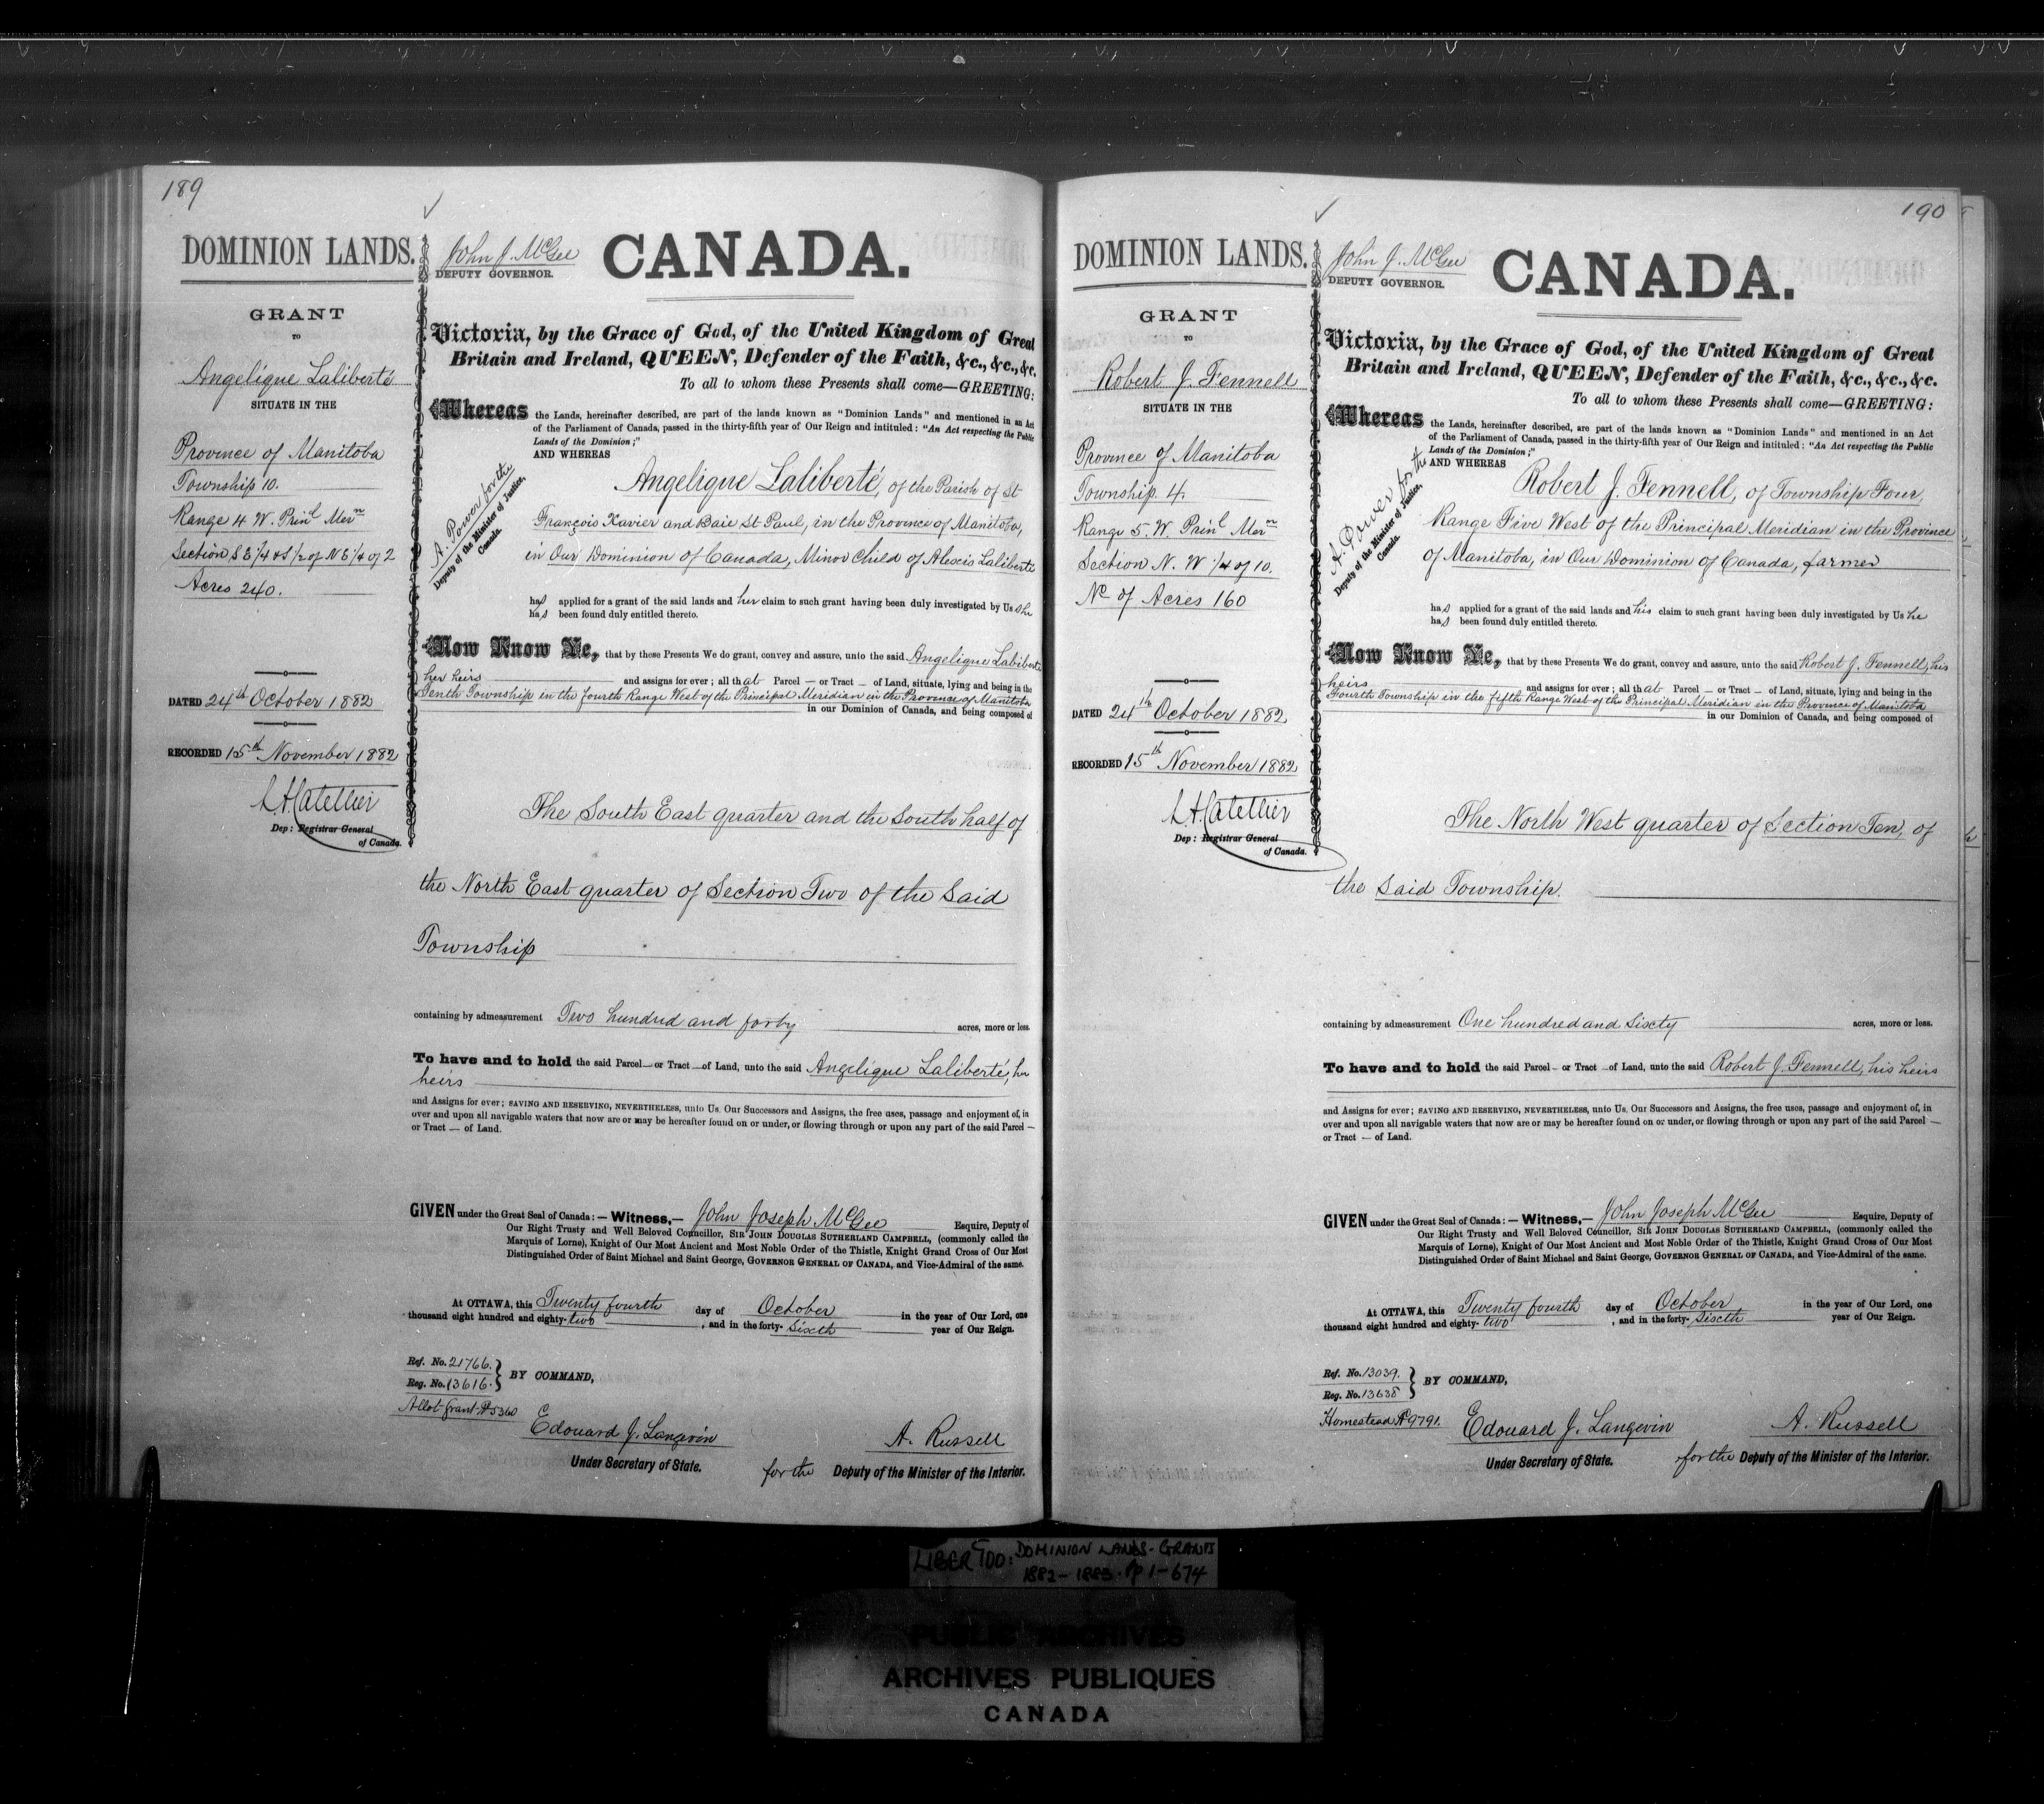 189
DOMINION LANDS.
GRANT
TO
Angelique Laliberté
SITUATE IN THE
Province of Manitoba
Township 10.
Range 4 W. Prinl Mern
Section S E 1/4 & S 1/2 of N E 1/4 of 2
Acres 240.
DATED 24th October 1882
RECORDED 15th November 1882
L. A. Catellier
Dep: Registrar General
of Canada.
John J. McGee
DEPUTY GOVERNOR.
CANADA.
Victoria, by the Grace of God, of the United Kingdom of Great
Britain and Ireland, QUEEN, Defender of the Faith, &c., &c., &c.
To all to whom these Presents shall come—GREETING:
Whereas the Lands, hereinafter described, are part of the lands known as "Dominion Lands" and mentioned in an Act
of the Parliament of Canada, passed in the thirty-fifth year of Our Reign and intituled: "An Act respecting the Public
Lands of the Dominion;"
AND WHEREAS
A. Power for the
Deputy of the Minister of Justice,
Canada.
Angelique Laliberté, of the Parish of St
François Xavier and Baie St Paul, in the Province of Manitoba,
in Our Dominion of Canada, Minor Child of Alexis Laliberté
has applied for a grant of the said lands and her claim to such grant having been duly investigated by Us she
has been found duly entitled thereto.
Now Know Ye, that by these Presents We do grant, convey and assure, unto the said Angelique Laliberté
her heirs and assigns for ever; all that Parcel — or Tract — of Land, situate, lying and being in the
Tenth Township in the fourth Range West of the Principal Meridian in the Province of Manitoba
in our Dominion of Canada, and being composed of
The South East quarter and the South half of
the North East quarter of Section Two of the Said
Township
containing by admeasurement Two hundred and forty acres, more or less.
To have and to hold the said Parcel — or Tract — of Land, unto the said Angelique Laliberté, her
heirs
and Assigns for ever; SAVING AND RESERVING, NEVERTHELESS, unto Us, Our Successors and Assigns, the free uses, passage and enjoyment of, in
over and upon all navigable waters that now are or may be hereafter found on or under, or flowing through or upon any part of the said Parcel —
or Tract — of Land.
GIVEN under the Great Seal of Canada: — Witness,— John Joseph McGee Esquire, Deputy of
Our Right Trusty and Well Beloved Councillor, SIR JOHN DOUGLAS SUTHERLAND CAMPBELL, (commonly called the
Marquis of Lorne), Knight of Our Most Ancient and Most Noble Order of the Thistle, Knight Grand Cross of Our Most
Distinguished Order of Saint Michael and Saint George, GOVERNOR GENERAL OF CANADA, and Vice-Admiral of the same.
At OTTAWA, this Twenty fourth day of October in the year of Our Lord, one
thousand eight hundred and eighty-two, and in the forty-sixth year of Our Reign.
Ref. No. 21766.
Reg. No. 13616.
BY COMMAND,
Allot Grant # 5360
Edouard J. Langevin
Under Secretary of State.
A. Russell
for the Deputy of the Minister of the Interior.
190
DOMINION LANDS.
GRANT
TO
Robert J. Fennell
SITUATE IN THE
Province of Manitoba
Township 4.
Range 5. W. Prinl Mern
Section N. W 1/4 of 10.
No of Acres 160
DATED 24th October 1882
RECORDED 15th November 1882
L. A. Catellier
Dep: Registrar General
of Canada.
John J. McGee
DEPUTY GOVERNOR.
CANADA.
Victoria, by the Grace of God, of the United Kingdom of Great
Britain and Ireland, QUEEN, Defender of the Faith, &c., &c., &c.
To all to whom these Presents shall come—GREETING:
Whereas the Lands, hereinafter described, are part of the lands known as "Dominion Lands" and mentioned in an Act
of the Parliament of Canada, passed in the thirty-fifth year of Our Reign and intituled: "An Act respecting the Public
Lands of the Dominion;"
AND WHEREAS
A. Power for the
Deputy of the Minister of Justice,
Canada.
Robert J. Fennell, of Township Four,
Range Five West of the Principal Meridian in the Province
of Manitoba, in Our Dominion of Canada, farmer
has applied for a grant of the said lands and his claim to such grant having been duly investigated by Us he
has been found duly entitled thereto.
Now Know Ye, that by these Presents We do grant, convey and assure, unto the said Robert J. Fennell, his
heirs and assigns for ever; all that Parcel — or Tract — of Land, situate, lying and being in the
Fourth Township in the fifth Range West of the Principal Meridian in the Province of Manitoba
in our Dominion of Canada, and being composed of
The North West quarter of Section Ten, of
the Said Township.
containing by admeasurement One hundred and Sixty acres, more or less.
To have and to hold the said Parcel — or Tract — of Land, unto the said Robert J. Fennell, his heirs
and Assigns for ever; SAVING AND RESERVING, NEVERTHELESS, unto Us, Our Successors and Assigns, the free uses, passage and enjoyment of, in
over and upon all navigable waters that now are or may be hereafter found on or under, or flowing through or upon any part of the said Parcel —
or Tract — of Land.
GIVEN under the Great Seal of Canada: — Witness,— John Joseph McGee Esquire, Deputy of
Our Right Trusty and Well Beloved Councillor, SIR JOHN DOUGLAS SUTHERLAND CAMPBELL, (commonly called the
Marquis of Lorne), Knight of Our Most Ancient and Most Noble Order of the Thistle, Knight Grand Cross of Our Most
Distinguished Order of Saint Michael and Saint George, GOVERNOR GENERAL OF CANADA, and Vice-Admiral of the same.
At OTTAWA, this Twenty fourth day of October in the year of Our Lord, one
thousand eight hundred and eighty-two, and in the forty-sixth year of Our Reign.
Ref. No. 13039.
Reg. No. 13638
BY COMMAND,
Homestead # 9791.
Edouard J. Langevin
Under Secretary of State.
A. Russell
for the Deputy of the Minister of the Interior.
LIBER 100: DOMINION LANDS - GRANTS
1882-1883. Pp 1-674
PUBLIC ARCHIVES
ARCHIVES PUBLIQUES
CANADA